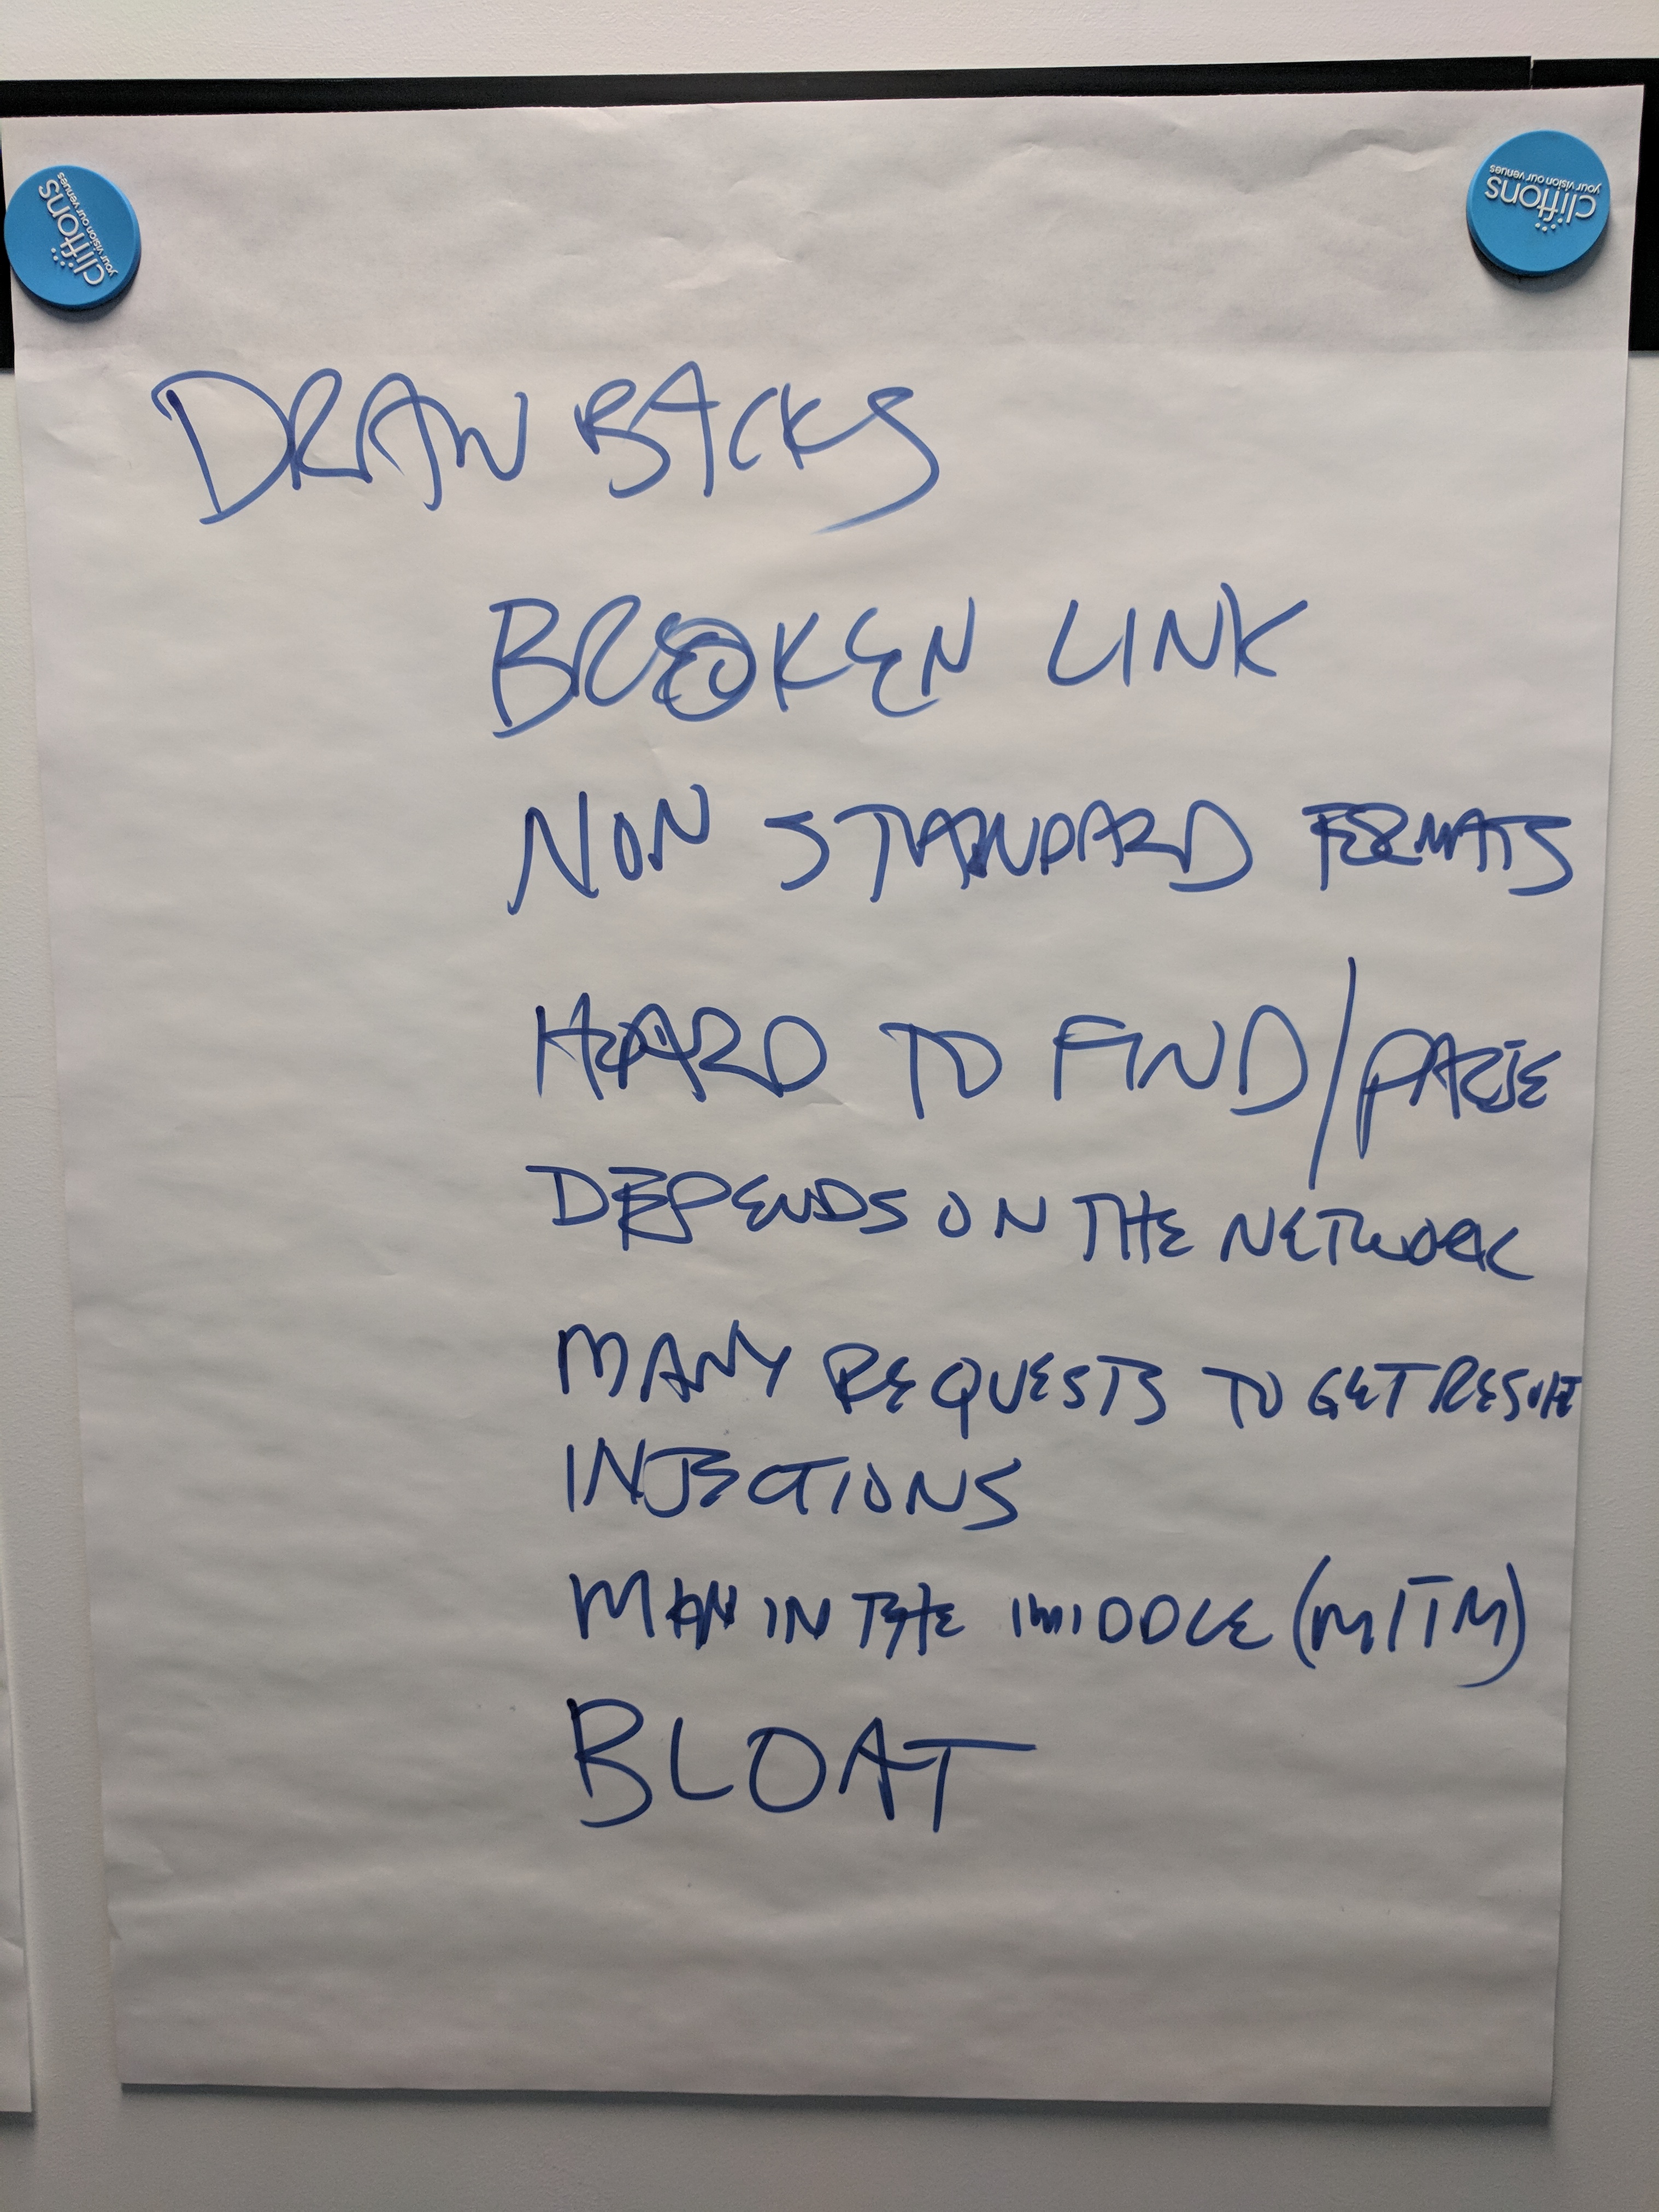 cliftons
your vision our venues
cliftons
your vision our venues
DRAWBACKS
BROKEN LINK
NON STANDARD FORMATS
HARD TO FIND/PARSE
DEPENDS ON THE NETWORK
MANY REQUESTS TO GET RESULT
INJECTIONS
MAN IN THE MIDDLE (MITM)
BLOAT